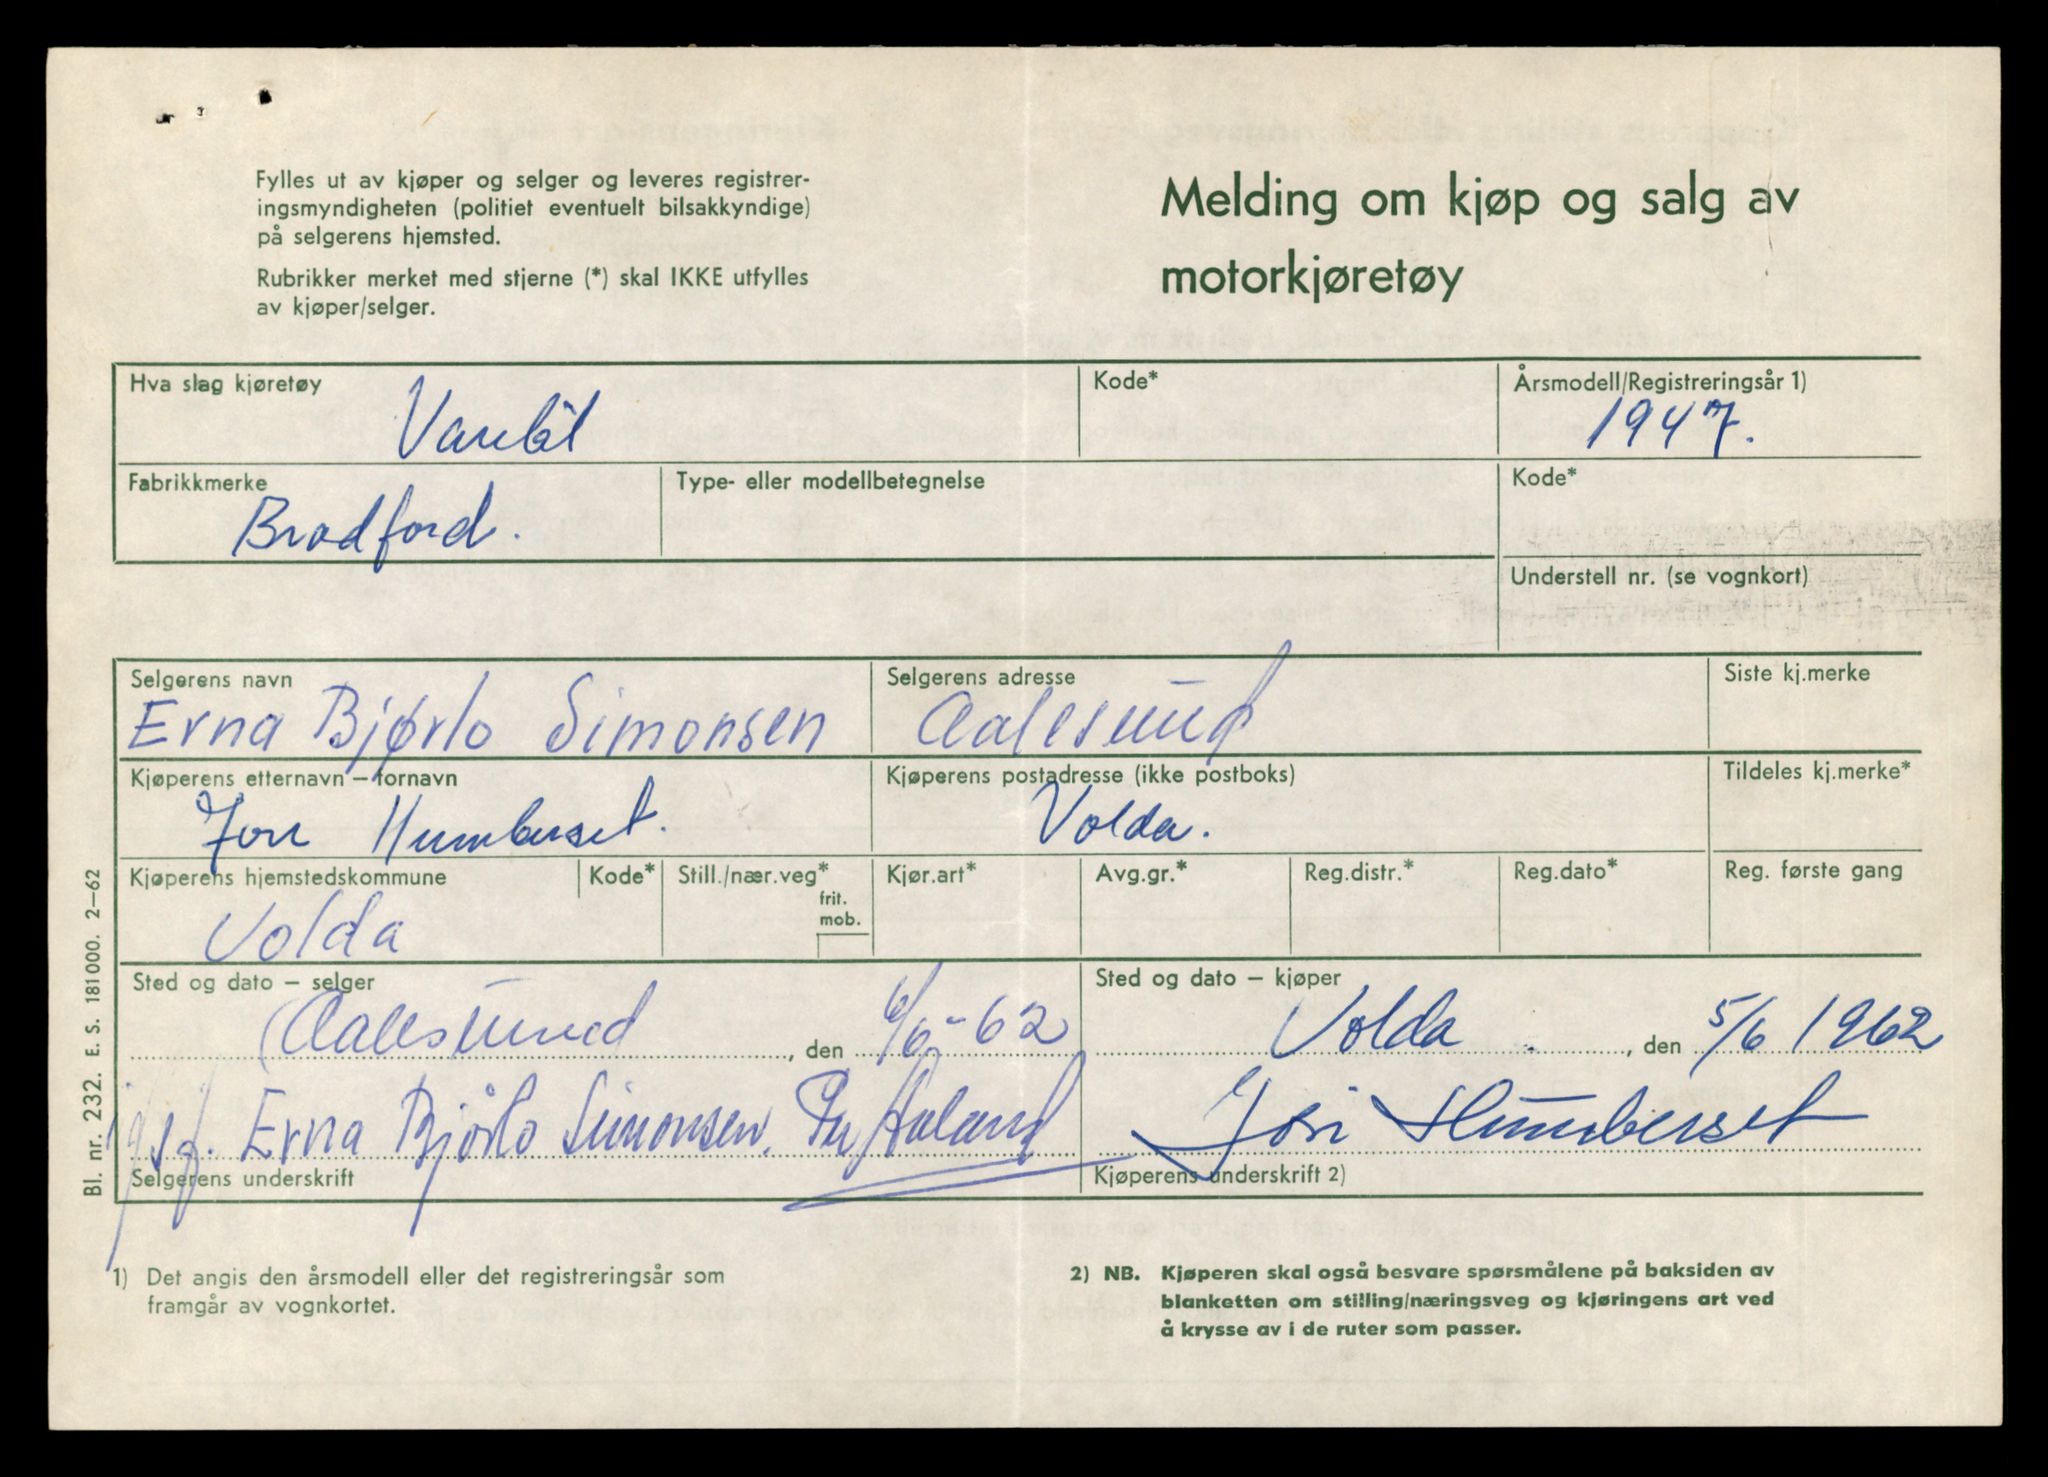 Fylles ut av kjøper og selger og leveres registrer-
ingsmyndigheten (politiet eventuelt bilsakkyndige)
på selgerens hjemsted.
Rubrikker merket med stjerne (*) skal IKKE utfylles
av kjøper/selger.
Melding om kjøp og salg av
motorkjøretøy
Hva slag kjøretøy
Varebil
Kode*
Årsmodell/Registreringsår 1)
1947.
Fabrikkmerke
Bradford.
Type- eller modellbetegnelse
Kode*
Understell nr. (se vognkort)
Selgerens navn
Erna Bjørlo Simonsen
Selgerens adresse
Aalesund
Siste kj.merke
Kjøperens etternavn – fornavn
Humberset.
Kjøperens postadresse (ikke postboks)
Volda.
Tildeles kj.merke*
Kjøperens hjemstedskommune
Volda
Kode*
Still./nær.veg*
frit.
mob.
Kjør.art*
Avg.gr.*
Reg.distr.*
Reg.dato*
Reg. første gang
Sted og dato – selger
Aalesund, den 6/6-62
Erna Bjørlo Simonsen.
Selgerens underskrift
Sted og dato – kjøper
Volda, den 5/6 1962
Humberset
Kjøperens underskrift 2)
Bl. nr. 232. E. S. 181000. 2–62
1) Det angis den årsmodell eller det registreringsår som
framgår av vognkortet.
2) NB. Kjøperen skal også besvare spørsmålene på baksiden av
blanketten om stilling/næringsveg og kjøringens art ved
å krysse av i de ruter som passer.